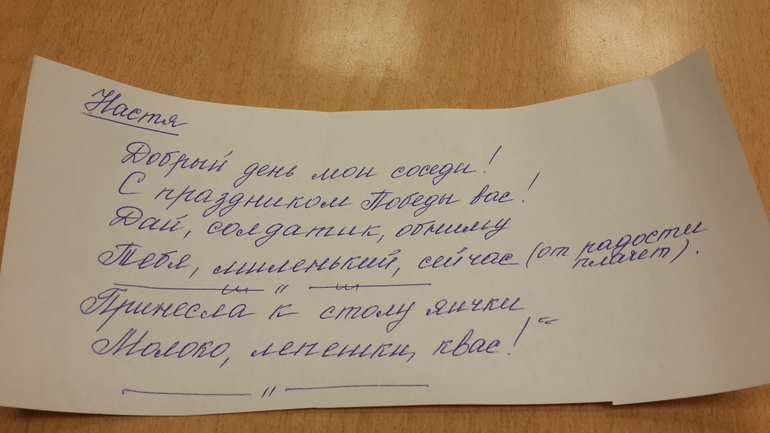 Настя
Добрый день мои соседи!
С праздником Победы вас!
Дай, солдатик, обниму
Тебя, миленький, сейчас (от радости плачет).
Принесла к столу яички
Молоко, лепешки, квас!"